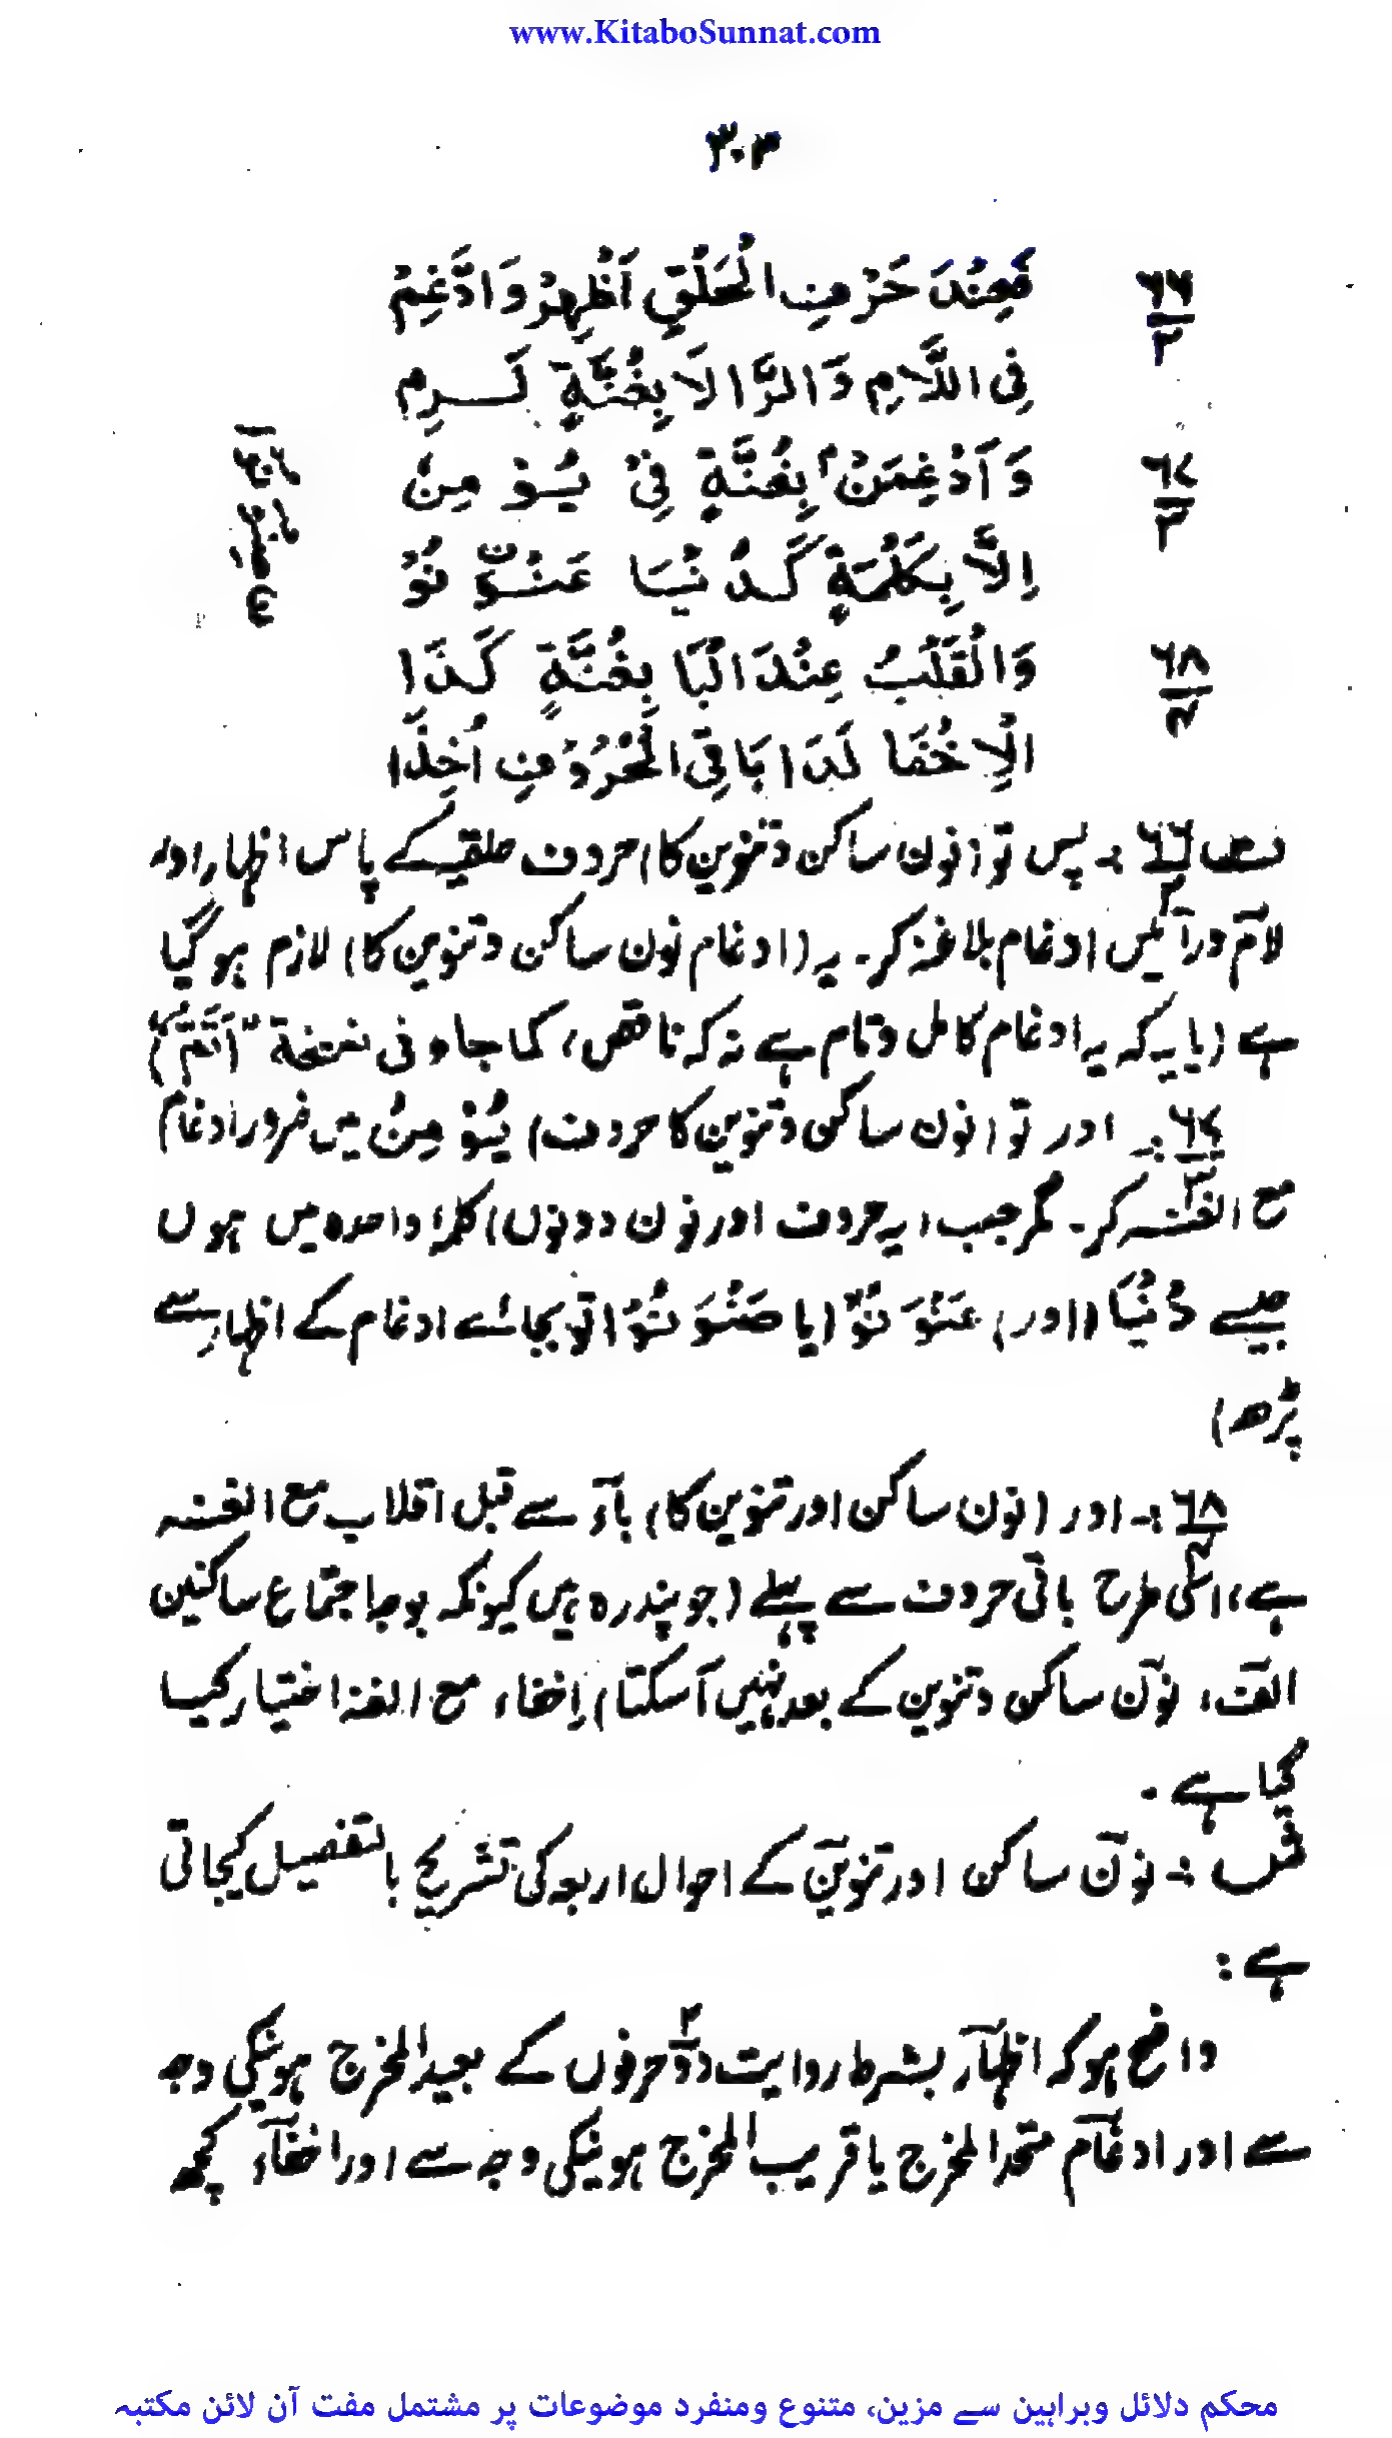 www.KitaboSunnat.com
۳۰۳
۶۶/۲ فَعِنْدَ حَرْفِ الْحَلْقِ اَظْهِرْ وَادَّغِمْ
فِی اللَّامِ وَالرَّا لَا بِغُنَّةٍ لَــزِم
۶۷/۳ وَ اَدْغِمَنْ بِغُنَّةٍ فِیْ یُــوْ مِنُ
اِلَّا بِکِلْمَةٍ کَــدُنْیَا عَنْــوَنُوْ
۶۸/۴ وَالْقَلْبُ عِنْدَ الْبَا بِغُنَّةٍ کَــذَا
الْاِخْفَا لَدَا بَاقِی الْحُرُوْفِ اُخِذَا
ص ۶۶/۲ :۔ پس تو (نون ساکن و تنوین کا) حروف حلقیہ کے پاس اظہار اور
لآم ورآ میں ادغام بلا غنہ کر۔ یہ (ادغام نون ساکن و تنوین کا) لازم ہو گیا
ہے (یا یہ کہ یہ ادغام کامل و تام ہے نہ کہ ناقص، کما جاء فی نسخۃ "اَتَمّ")
۶۷/۳ :۔ اور تو (نون ساکن و تنوین کا حروف) یُوْمِنُ میں ضرور ادغام
مع الغنّہ کر۔ مگر جب (یہ حروف اور نون دونوں) کلمۂ واحدہ میں ہوں
جیسے دُنْیَا (اور) عَنْوَنُوْ (یا صَنْوَنُوْ) تو بجائے ادغام کے اظہار سے
پڑھ)
۶۸/۴ :۔ اور (نون ساکن اور تنوین کا) بآء سے قبل اقلاب مع الغنہ
ہے، اسکی طرح باقی حروف سے پہلے (جو پندرہ ہیں کیونکہ بوجہ اجتماع ساکنین
الف، نوٓن ساکن و تنوین کے بعد نہیں آسکتا) اِخفاء مع الغنہ اختیار کیا
گیا ہے۔
ش :۔ نوٓن ساکن اور تنویٓن کے احوال اربعہ کی تشریح بالتفصیل کیجاتی
ہے :
واضح ہو کہ اظہآر بشرط روایت دوؔ۲ حرفوں کے بعید المخرج ہونیکی وجہ
سے اور ادغآم متحد المخرج یا قریب المخرج ہونیکی وجہ سے اور اخفآء کچھ
محکم دلائل وبراہین سے مزین، متنوع ومنفرد موضوعات پر مشتمل مفت آن لائن مکتبہ